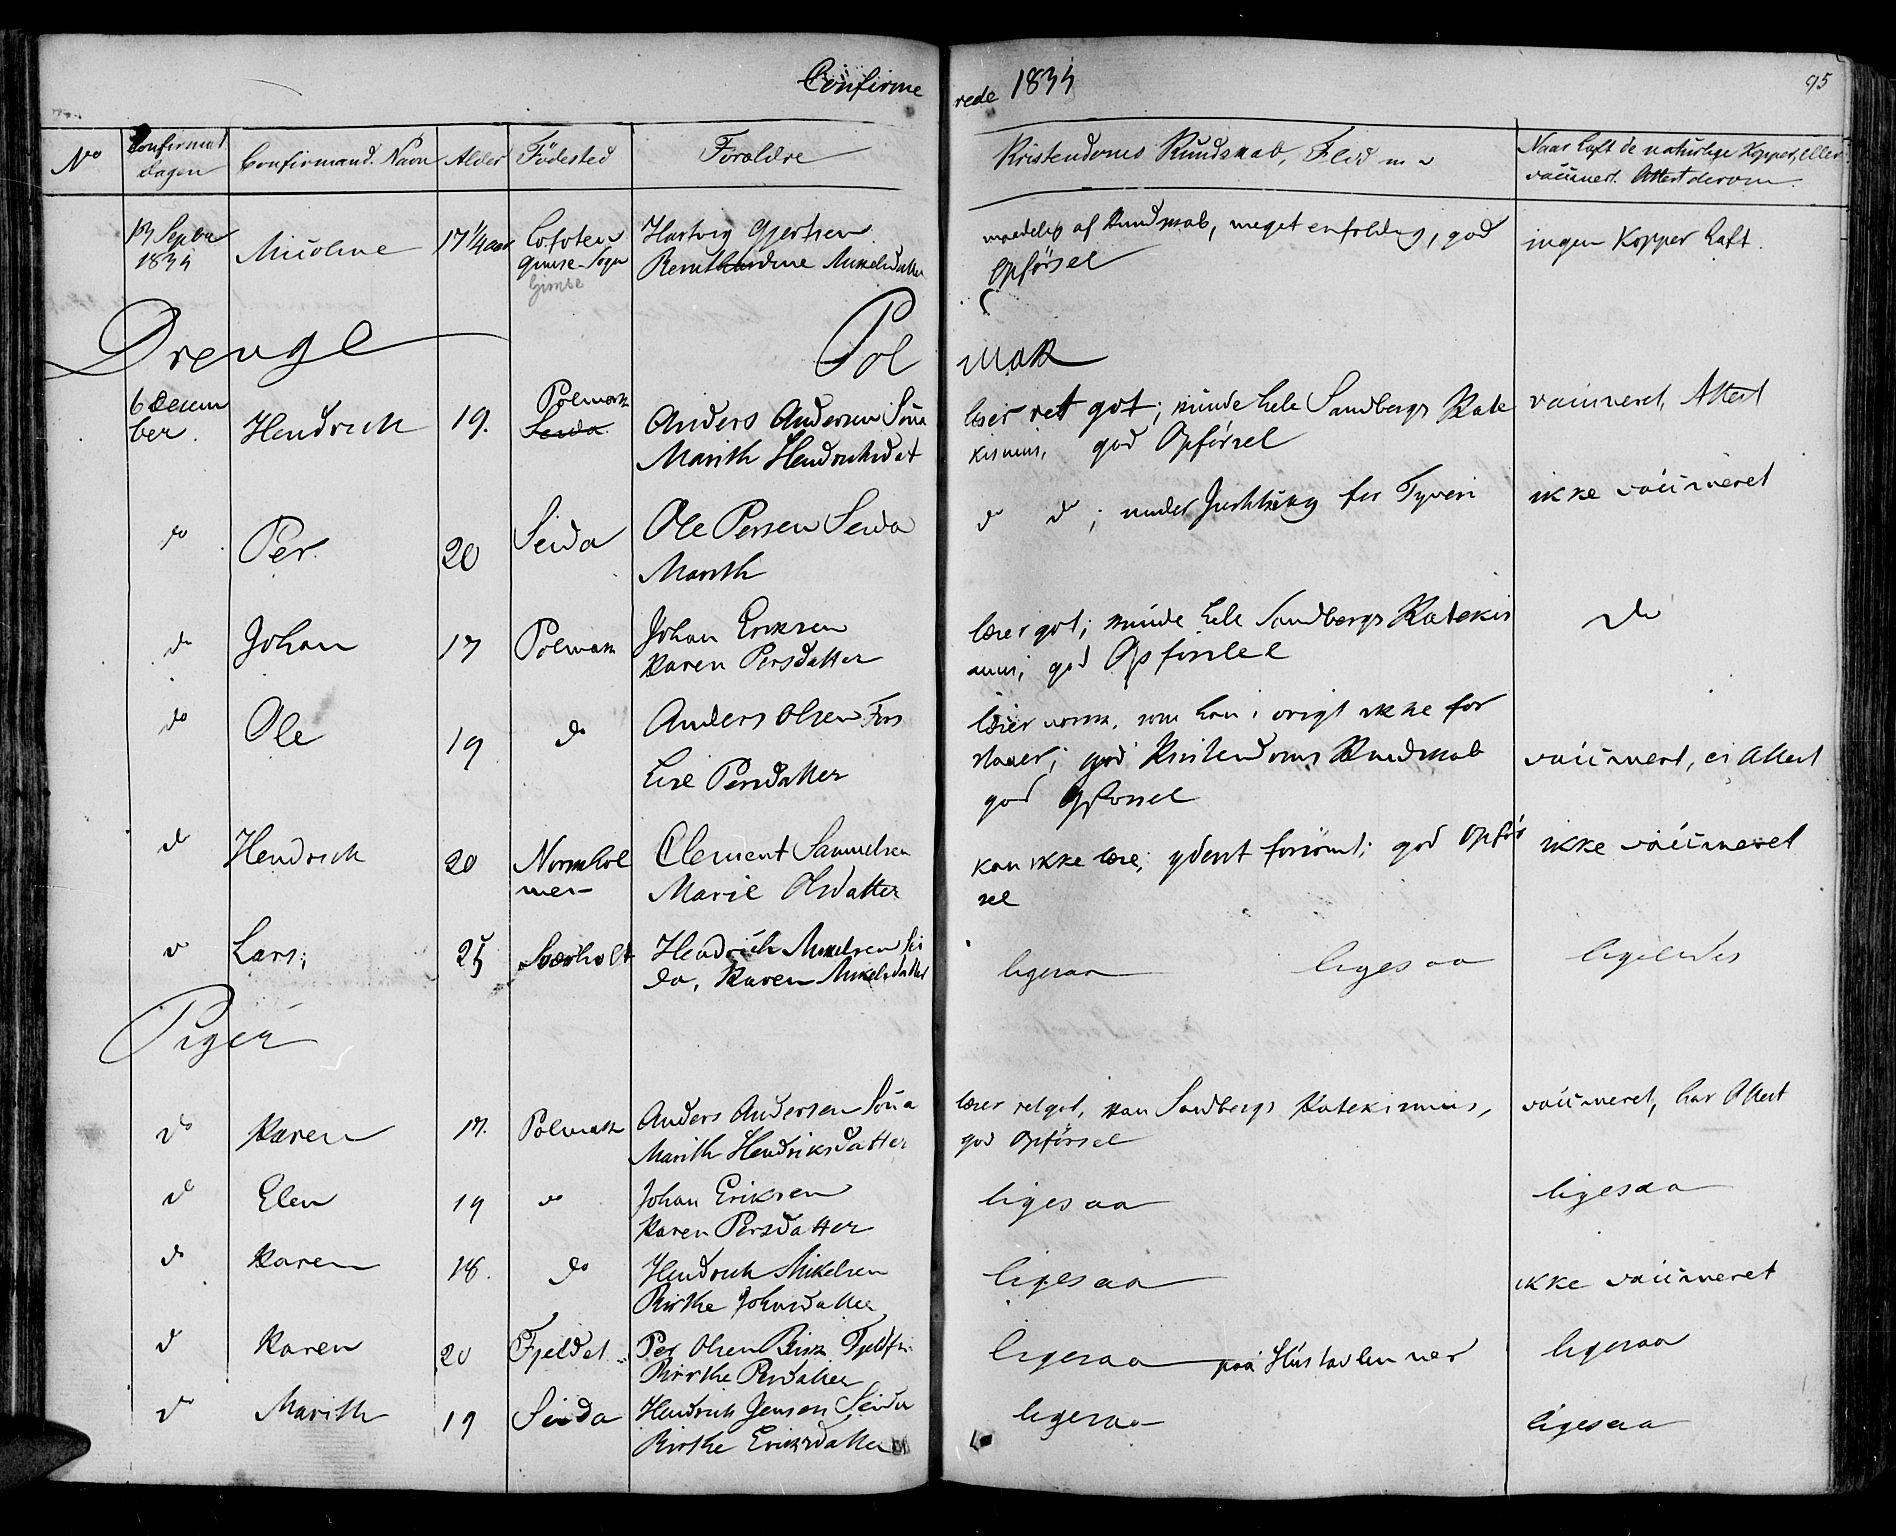 Confirme
rede 1834
95
No
Confirmat. Dagen
Confirmand. Navn
Alder
Fødested
Forældre
Kristendoms Kundskab, Flid m v
Naar haft de naturlige Kopper, eller
vaccineret. Attest derom.
1834
Nicoline
17 1/4 aar
Lofoten
Gimsø Sogn
Gimsø
Hartvig Gjertsen
Mikelsdatter
maadelig af Kundskab, meget enfoldig, god
Opførsel
ingen Kopper haft.
Drenge
Pol
mak
6 Decem
ber.
Hendrich
19.
Polmak
Seida
Anders Andersen Soua
Marith Hendrichsdat
læser ret got; kunde hele Sandbergs Kate
kismus, god Opførsel
vaccineret, Attest
do
Per.
20
Seida
Ole Persen Seida
Marith
do do; under Justitsen for Tyveri
ikke vaccineret
do
Johan
17
Polmak
Johan Eriksen
Karen Persdatter
læser got; kunde hele Sandbergs Katekis
mus; god Opførsel
do
do
Ole
19
do
Anders Olsen Fors
Lise Persdatter
læser norsk, som han i øvrigt ikke for
staaer; god Kristendoms Kundskab
god Opførsel
vaccinert, ei Attest
do
Hendrich
20
Normhol
men
Clement Samuelsen
Marie Olsdatter
kan ikke læse; yderst forsømt; god Opfør
sel
ikke vaccineret
do
Lars,
Sværholt
Hendrich Mikelsen Sei
da, Karen Mikelsdatter
ligesaa ligesaa
ligeledes
Piger
do
Karen
17.
Polmak
Anders Andersen Soua
Marith Hendriksdatter
læser ret got, kan Sandbergs Katekismus,
god Opførsel
vaccineret, har Attest
do
Elen
19
do
Johan Eriksen
Karen Persdatter
ligesaa
ligesaa
do
Karen
18.
do
Hendrich Mikelsen
Birthe Johnsdatter
ligesaa
ikke vaccineret
do
Karen
20
Fjeldet
Per Olsen Fjeldfin
Birthe Persdatter
ligesaa paa Hustavlen nær
ligesaa
do
Marith
19
Seida
Hendrich Jensen Seida
Birthe Ericksdatter
ligesaa
ligesaa